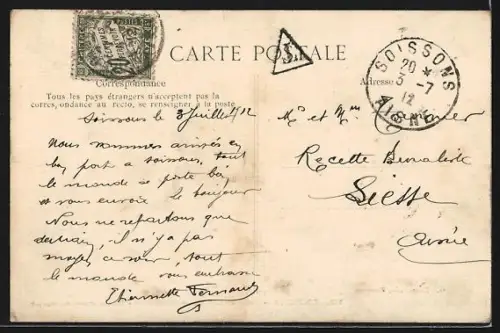 CARTE POSTALE
Correspondance
Adresse
Tous les pays étrangers n'acceptent pas la
corres,ondance au recto, se renseigner à la poste
T
SOISSONS
20 *
3 -7
12
AISNE
Soissons le 3 Juillet 1912
Nous sommes arrivés en
bon port a soissons, tout
le monde se porte bien
et vous envoie le bonjour
Nous ne repartons que
demain, il n'y a pas
moyen ce soir, tout
le monde vous embrasse
Fernand
Mr et Mme
Recette Buraliste
Liesse
Aisne